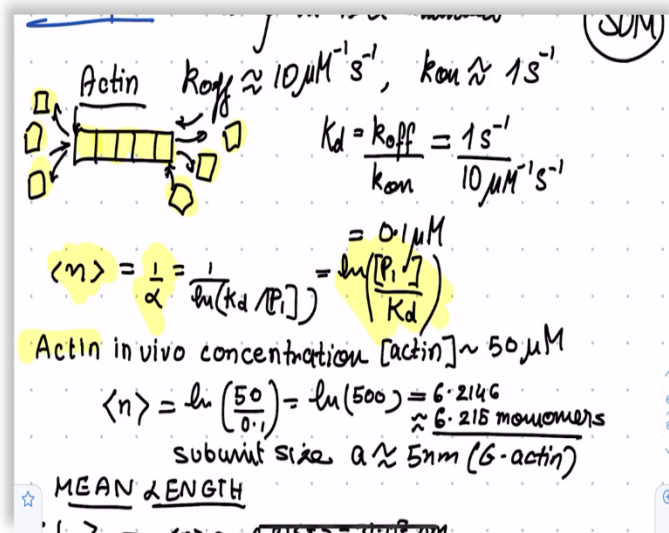 SDM
Actin koff ≈ 10 μM⁻¹s⁻¹, kon ≈ 1s⁻¹
Kd = koff / kon = 1s⁻¹ / 10 μM⁻¹s⁻¹
= 0.1μM
<n> = 1/α = 1/ln(Kd/[P₁]) = ln([P₁]/Kd)
Actin in vivo concentration [actin] ~ 50 μM
<n> = ln(50/0.1) = ln(500) = 6.2146
≈ 6.215 monomers
subunit size a ≈ 5nm (G-actin)
MEAN LENGTH